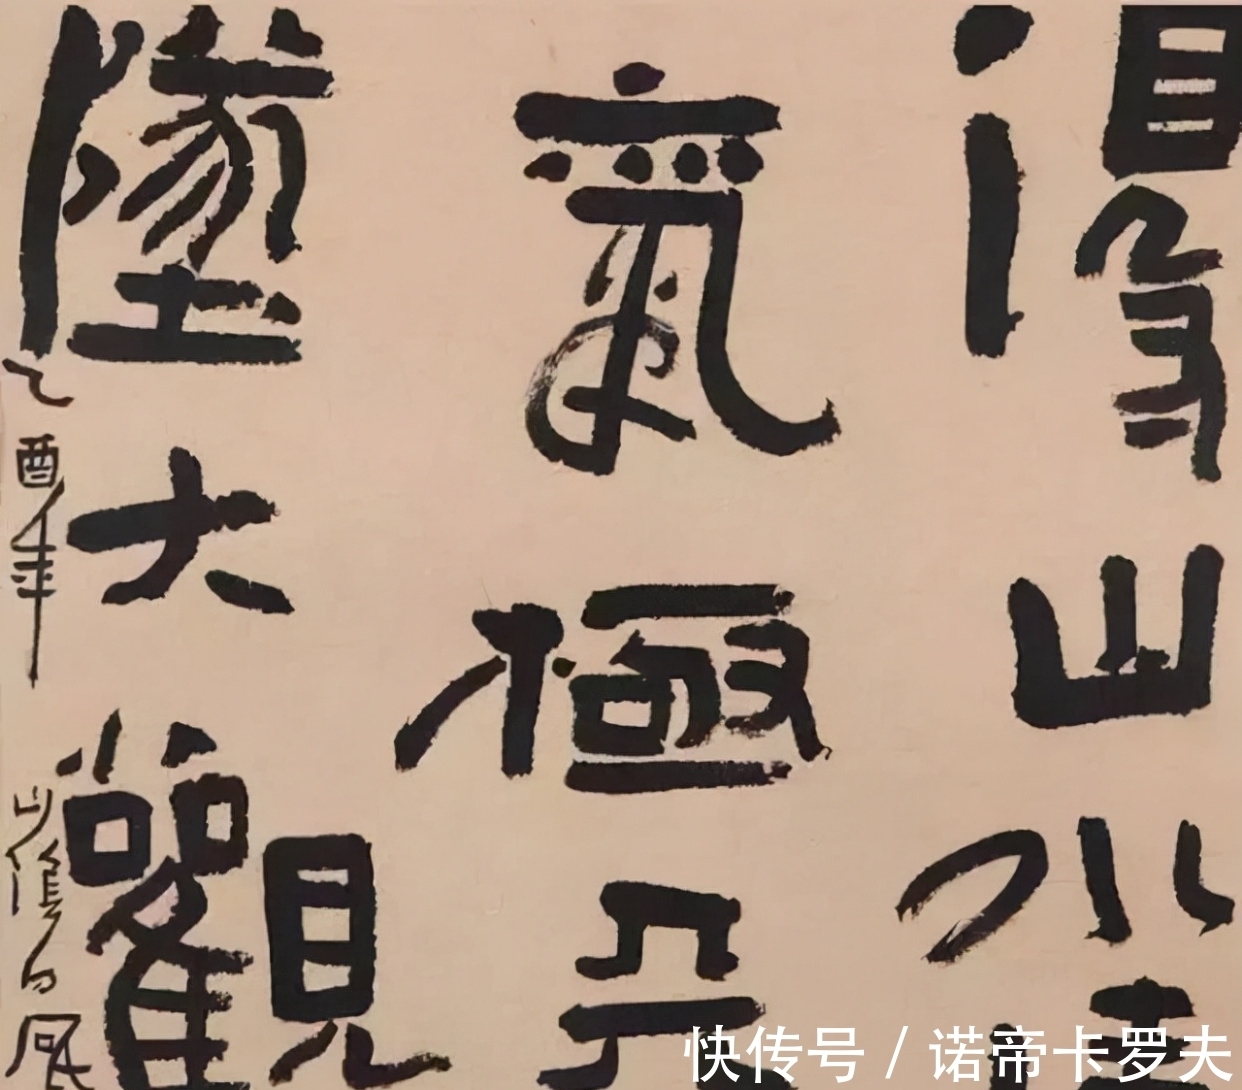 得山水
氣極
墜大觀
乙酉年
快传号 / 诺帝卡罗夫